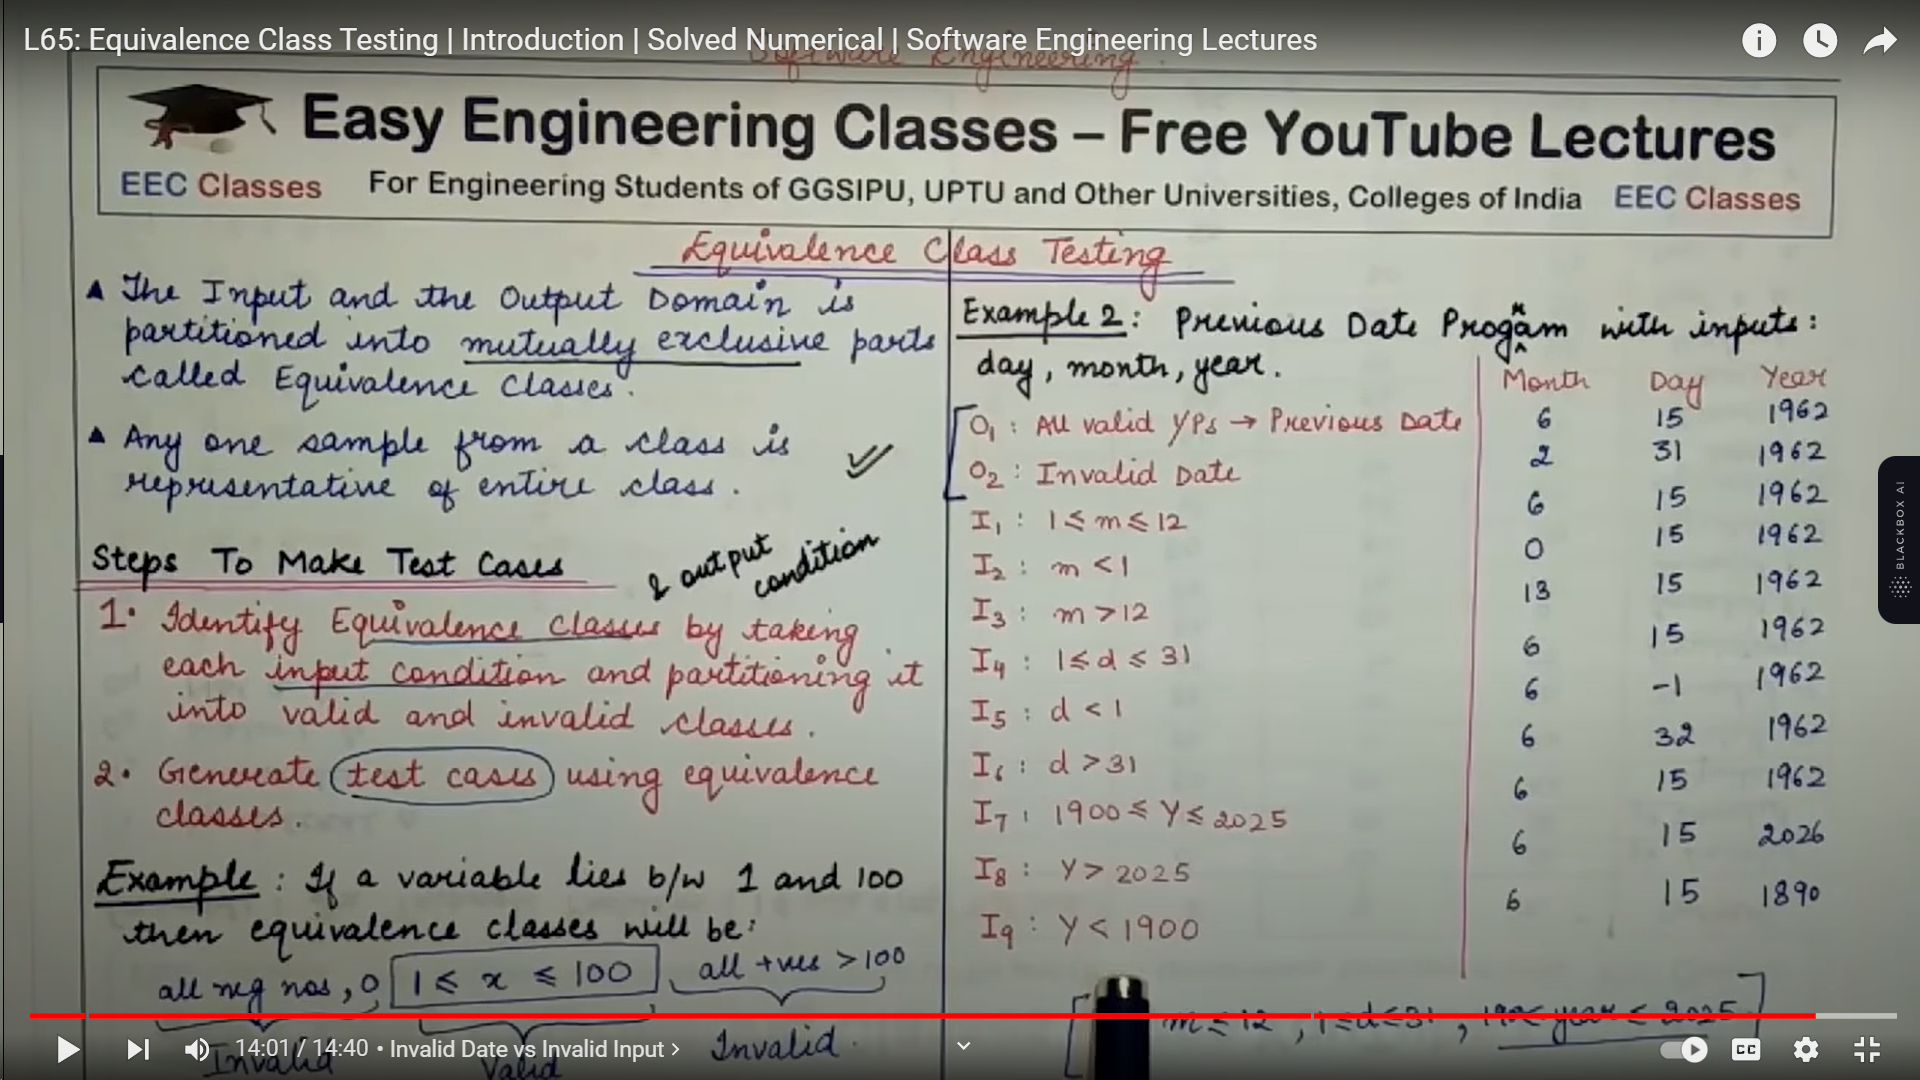 L65: Equivalence Class Testing | Introduction | Solved Numerical | Software Engineering Lectures
Software Engineering.
Easy Engineering Classes – Free YouTube Lectures
EEC Classes For Engineering Students of GGSIPU, UPTU and Other Universities, Colleges of India EEC Classes
Equivalence Class Testing
▲ The Input and the Output Domain is
partitioned into mutually exclusive parts
called Equivalence Classes.
▲ Any one sample from a class is
representative of entire class.
Steps To Make Test Cases
& output
condition
1. Identify Equivalence classes by taking
each input condition and partitioning it
into valid and invalid classes.
2. Generate test cases using equivalence
classes.
Example : If a variable lies b/w 1 and 100
then equivalence classes will be:
all neg nos, 0 1 ≤ x ≤ 100 all +ves > 100
Invalid Valid Invalid.
Example 2: Previous Date Progam with inputs:
r
day, month, year.
Month Day Year
O1 : All valid I/Ps → Previous Date 6 15 1962
O2 : Invalid Date 2 31 1962
I1 : 1 ≤ m ≤ 12 6 15 1962
I2 : m < 1 0 15 1962
I3 : m > 12 13 15 1962
I4 : 1 ≤ d ≤ 31 6 15 1962
I5 : d < 1 6 -1 1962
I6 : d > 31 6 32 1962
I7 : 1900 ≤ Y ≤ 2025 6 15 1962
I8 : Y > 2025 6 15 2026
I9 : Y < 1900 6 15 1890
m ≤ 12, 1 ≤ d ≤ 31, year ≤ 2025
14:01 / 14:40 • Invalid Date vs Invalid Input >
CC
BLACKBOX AI